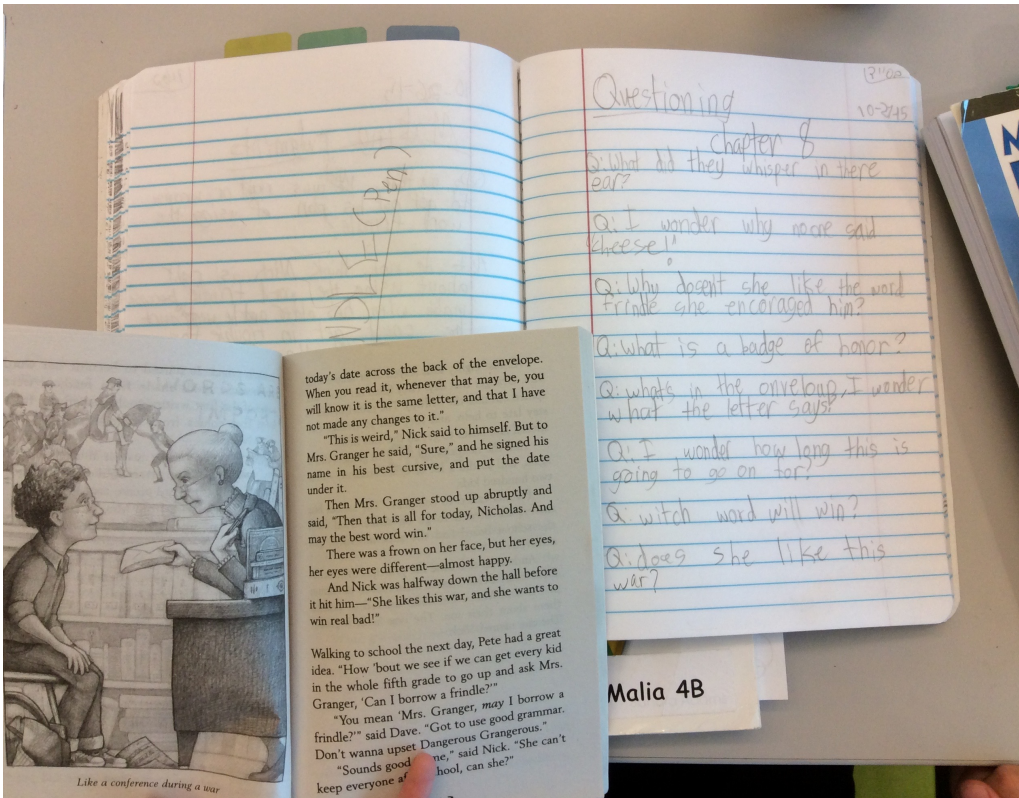 Questioning
10-21-15
chapter 8
Q: What did they whisper in there
ear?
Q: I wonder why noone said
"cheese!"
Q: Why dosent she like the word
frindle she encoraged him?
Q: what is a badge of honor?
Q: what's in the onveloup, I wonder
what the letter says?
Q: I wonder how long this is
going to go on for?
Q: witch word will win?
Q: does she like this
war?
(Pen)
today's date across the back of the envelope.
When you read it, whenever that may be, you
will know it is the same letter, and that I have
not made any changes to it."
"This is weird," Nick said to himself. But to
Mrs. Granger he said, "Sure," and he signed his
name in his best cursive, and put the date
under it.
Then Mrs. Granger stood up abruptly and
said, "Then that is all for today, Nicholas. And
may the best word win."
There was a frown on her face, but her eyes,
her eyes were different—almost happy.
And Nick was halfway down the hall before
it hit him—"She likes this war, and she wants to
win real bad!"
Walking to school the next day, Pete had a great
idea. "How 'bout we see if we can get every kid
in the whole fifth grade to go up and ask Mrs.
Granger, 'Can I borrow a frindle?'"
"You mean 'Mrs. Granger, may I borrow a
frindle?'" said Dave. "Got to use good grammar.
Don't wanna upset Dangerous Grangerous."
"Sounds good me," said Nick. "She can't
keep everyone hool, can she?"
Like a conference during a war
Malia 4B